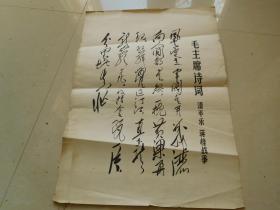 毛主席诗词
清平乐 蒋桂战争
风云突变军阀重开战洒
向人间都是怨一枕黄粱再
现红旗跃过汀江直下龙
岩上杭收拾金瓯一片
分田分地真忙